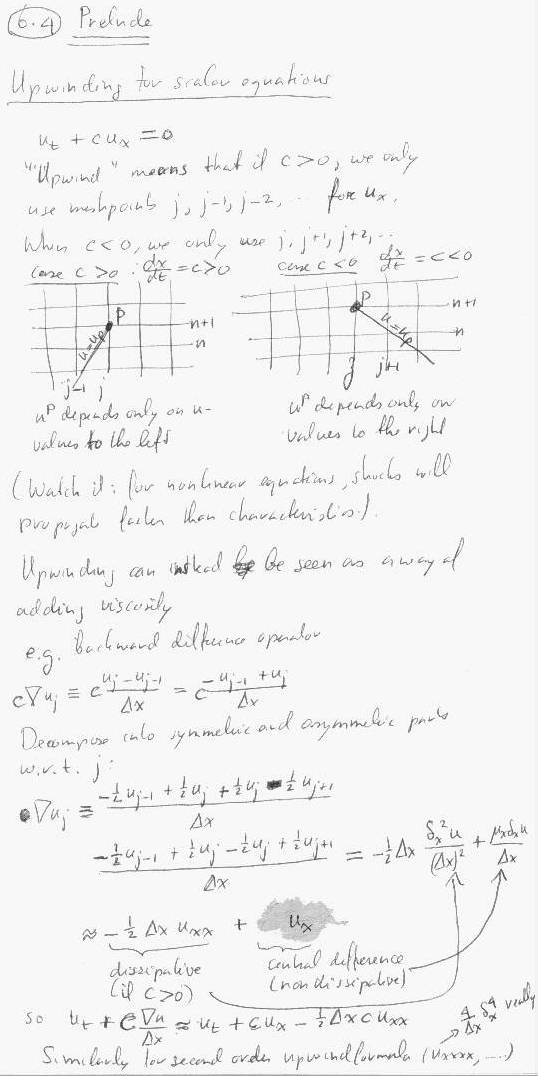 6.4 Prelude
Upwinding for scalar equations
u_t + c u_x = 0
"Upwind" means that if c > 0, we only
use meshpoints j, j-1, j-2, ... for u_x.
When c < 0, we only use j, j+1, j+2, ...
case c > 0 : dx/dt = c > 0
case c < 0 dx/dt = c < 0
P
n+1
n
u = u_P
j-1 j
P
n+1
n
u = u_P
j j+1
u^P depends only on u-
values to the left
u^P depends only on
values to the right
(Watch it: for nonlinear equations, shocks will
propagate faster than characteristics!).
Upwinding can instead be seen as a way of
adding viscosity
e.g. Backward difference operator
c∇u_j ≡ c (u_j - u_{j-1})/Δx = c (-u_{j-1} + u_j)/Δx
Decompose into symmetric and asymmetric parts
w.r.t. j:
∇u_j ≡ (-½u_{j-1} + ½u_j + ½u_j - ½u_{j+1})/Δx
(-½u_{j-1} + ½u_j - ½u_j + ½u_{j+1})/Δx = -½Δx δ_x²u/(Δx)² + μ_xδ_xu/Δx
≈ -½ Δx u_xx + u_x
dissipative
(if c > 0)
central difference
(non dissipative)
so u_t + c ∇u/Δx ≈ u_t + c u_x - ½Δx c u_xx
δ_x⁴ really
Similarly for second order upwind formula (u_xxxx, ...)